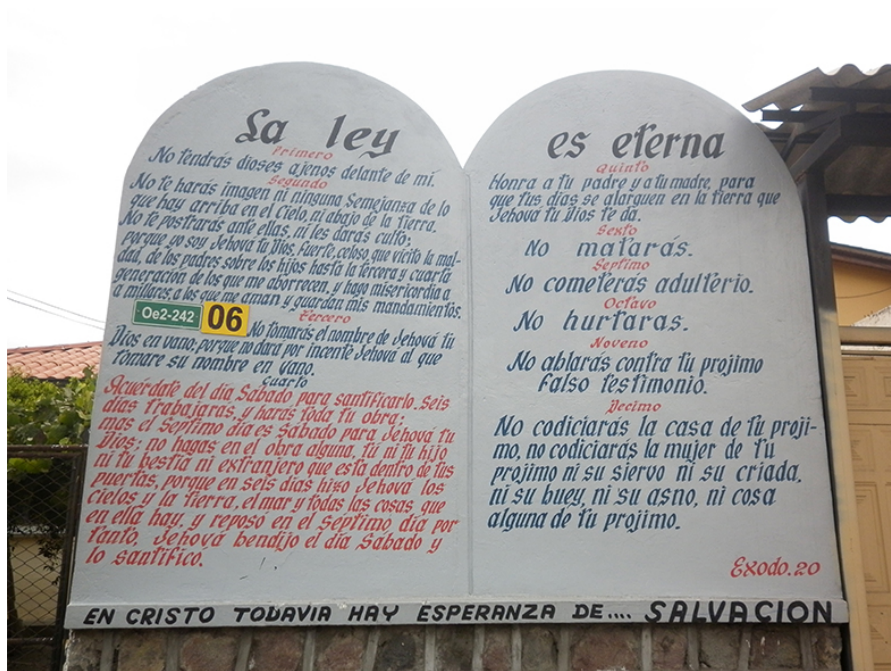 La ley
Primero
No tendrás dioses ajenos delante de mí.
Segundo
No te harás imagen ni ninguna Semejanza de lo
que hay arriba en el Cielo, ni abajo de la tierra,
No te postrarás ante ellas, ni les darás culto;
porque yo soy Jehová tu Dios, fuerte, celoso que visito la mal-
dad, de los padres sobre los hijos hasta la tercera y cuarta
generación de los que me aborrecen, y hago misericordia a
a millares, a los que me aman y guardan mis mandamientos.
Oe2-242
06
Tercero
No tomarás el nombre de Jehová tu
Dios en vano; porque no dara por incente Jehová al que
tomare su nombre en vano.
Cuarto
Acuérdate del día Sabado para santificarlo. Seis
días trabajaras, y harás toda tu obra;
mas el Septimo día es Sabado para Jehová tu
Dios; no hagas en el obra alguna, tú ni tu hijo
ni tu bestia ni extranjero que esta dentro de tus
puertas, porque en seis días hizo Jehová los
cielos y la tierra, el mar y todas las cosas que
en ella hay, y reposo en el Septimo día por
tanto, Jehová bendijo el día Sabado y
lo santifico.
es eterna
Quinto
Honra a tu padre y a tu madre, para
que tus días se alarguen en la tierra que
Jehová tu Dios te da.
Sexto
No matarás.
Septimo
No cometerás adulterio.
Octavo
No hurtaras.
Noveno
No ablarás contra tu projimo
falso testimonio.
Decimo
No codiciarás la casa de tu proji-
mo, no codiciarás la mujer de tu
projimo ni su siervo ni su criada,
ni su buey, ni su asno, ni cosa
alguna de tu projimo.
Exodo.20
EN CRISTO TODAVIA HAY ESPERANZA DE.... SALVACION